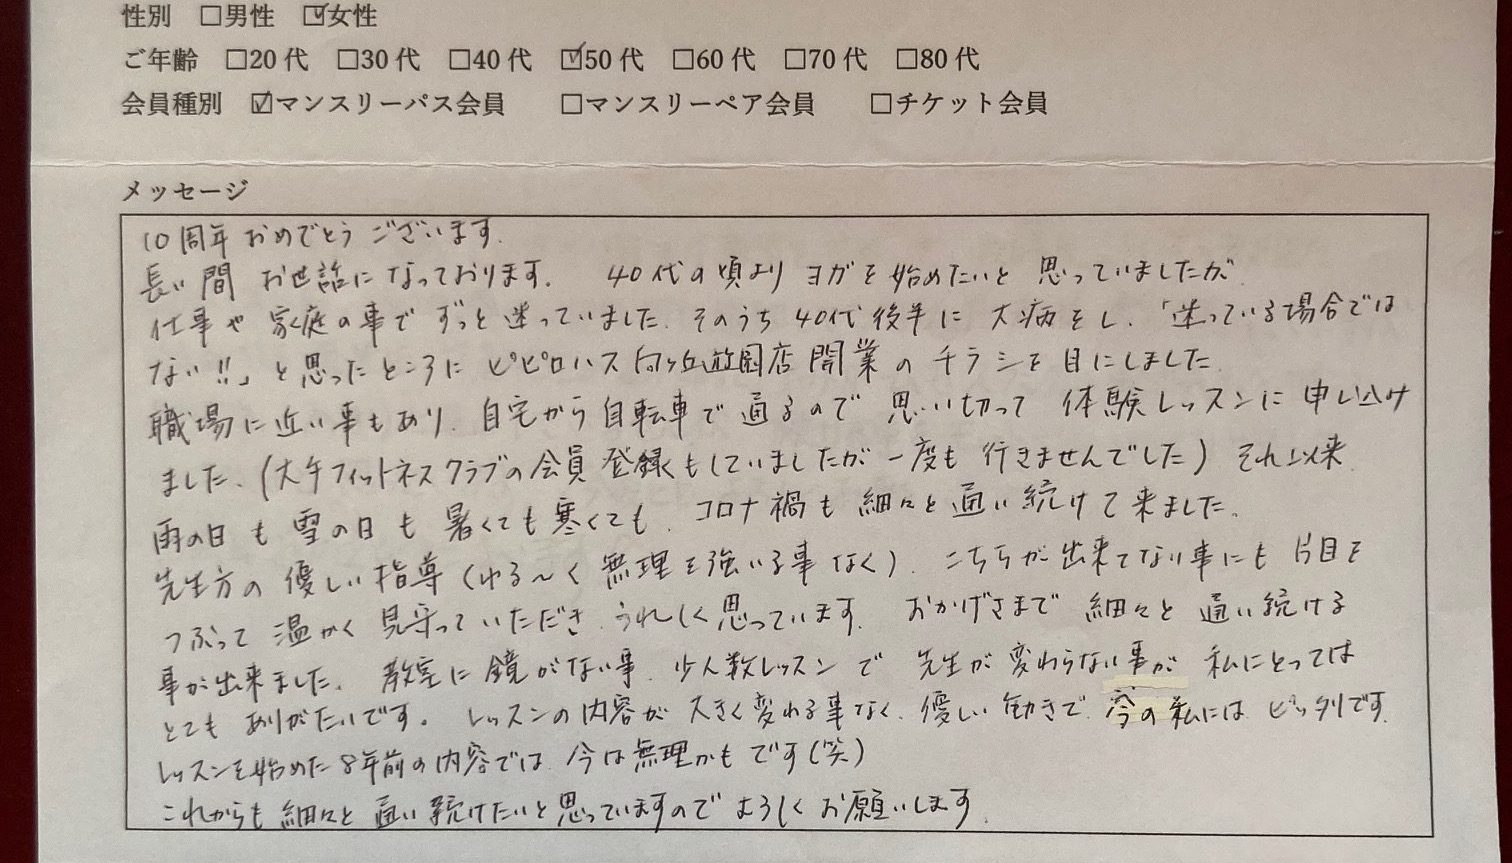 性別 □男性 ☑女性
ご年齢 □20代 □30代 □40代 ☑50代 □60代 □70代 □80代
会員種別 ☑マンスリーパス会員 □マンスリーペア会員 □チケット会員
メッセージ
10周年おめでとうございます.
長い間 お世話になっております. 40代の頃より ヨガを始めたいと 思っていましたが
仕事や 家庭の事で ずっと迷っていました. そのうち 40代後半に 大病をし、「迷っている場合では
ない!!」と思ったところに ピピロハス向ヶ丘遊園店 開業のチラシを目にしました
職場に近い事もあり、自宅から自転車で通るので 思い切って 体験レッスンに申し込け
ました、(大手フィットネスクラブの会員登録もしていましたが 一度も 行きませんでした) それ以来
雨の日も 雪の日も 暑くても寒くても、コロナ禍も 細々と通い続けて来ました.
先生方の優しい指導(ゆる〜く 無理を強いる事なく)、こちらが出来てない事にも 片目を
つぶって 温かく 見守っていただき うれしく思っています. おかげさまで 細々と 通い続ける
事が出来ました. 教室に鏡がない事、少人数レッスンで 先生が変わらない事が 私にとっては
とても ありがたいです。 レッスンの内容が 大きく変わる事なく、優しい動きで、今の私には ピッタリです.
レッスンを始めた 8年前の内容では 今は無理かもです(笑)
これからも細々と 通い続けたいと思っていますので よろしくお願いします.